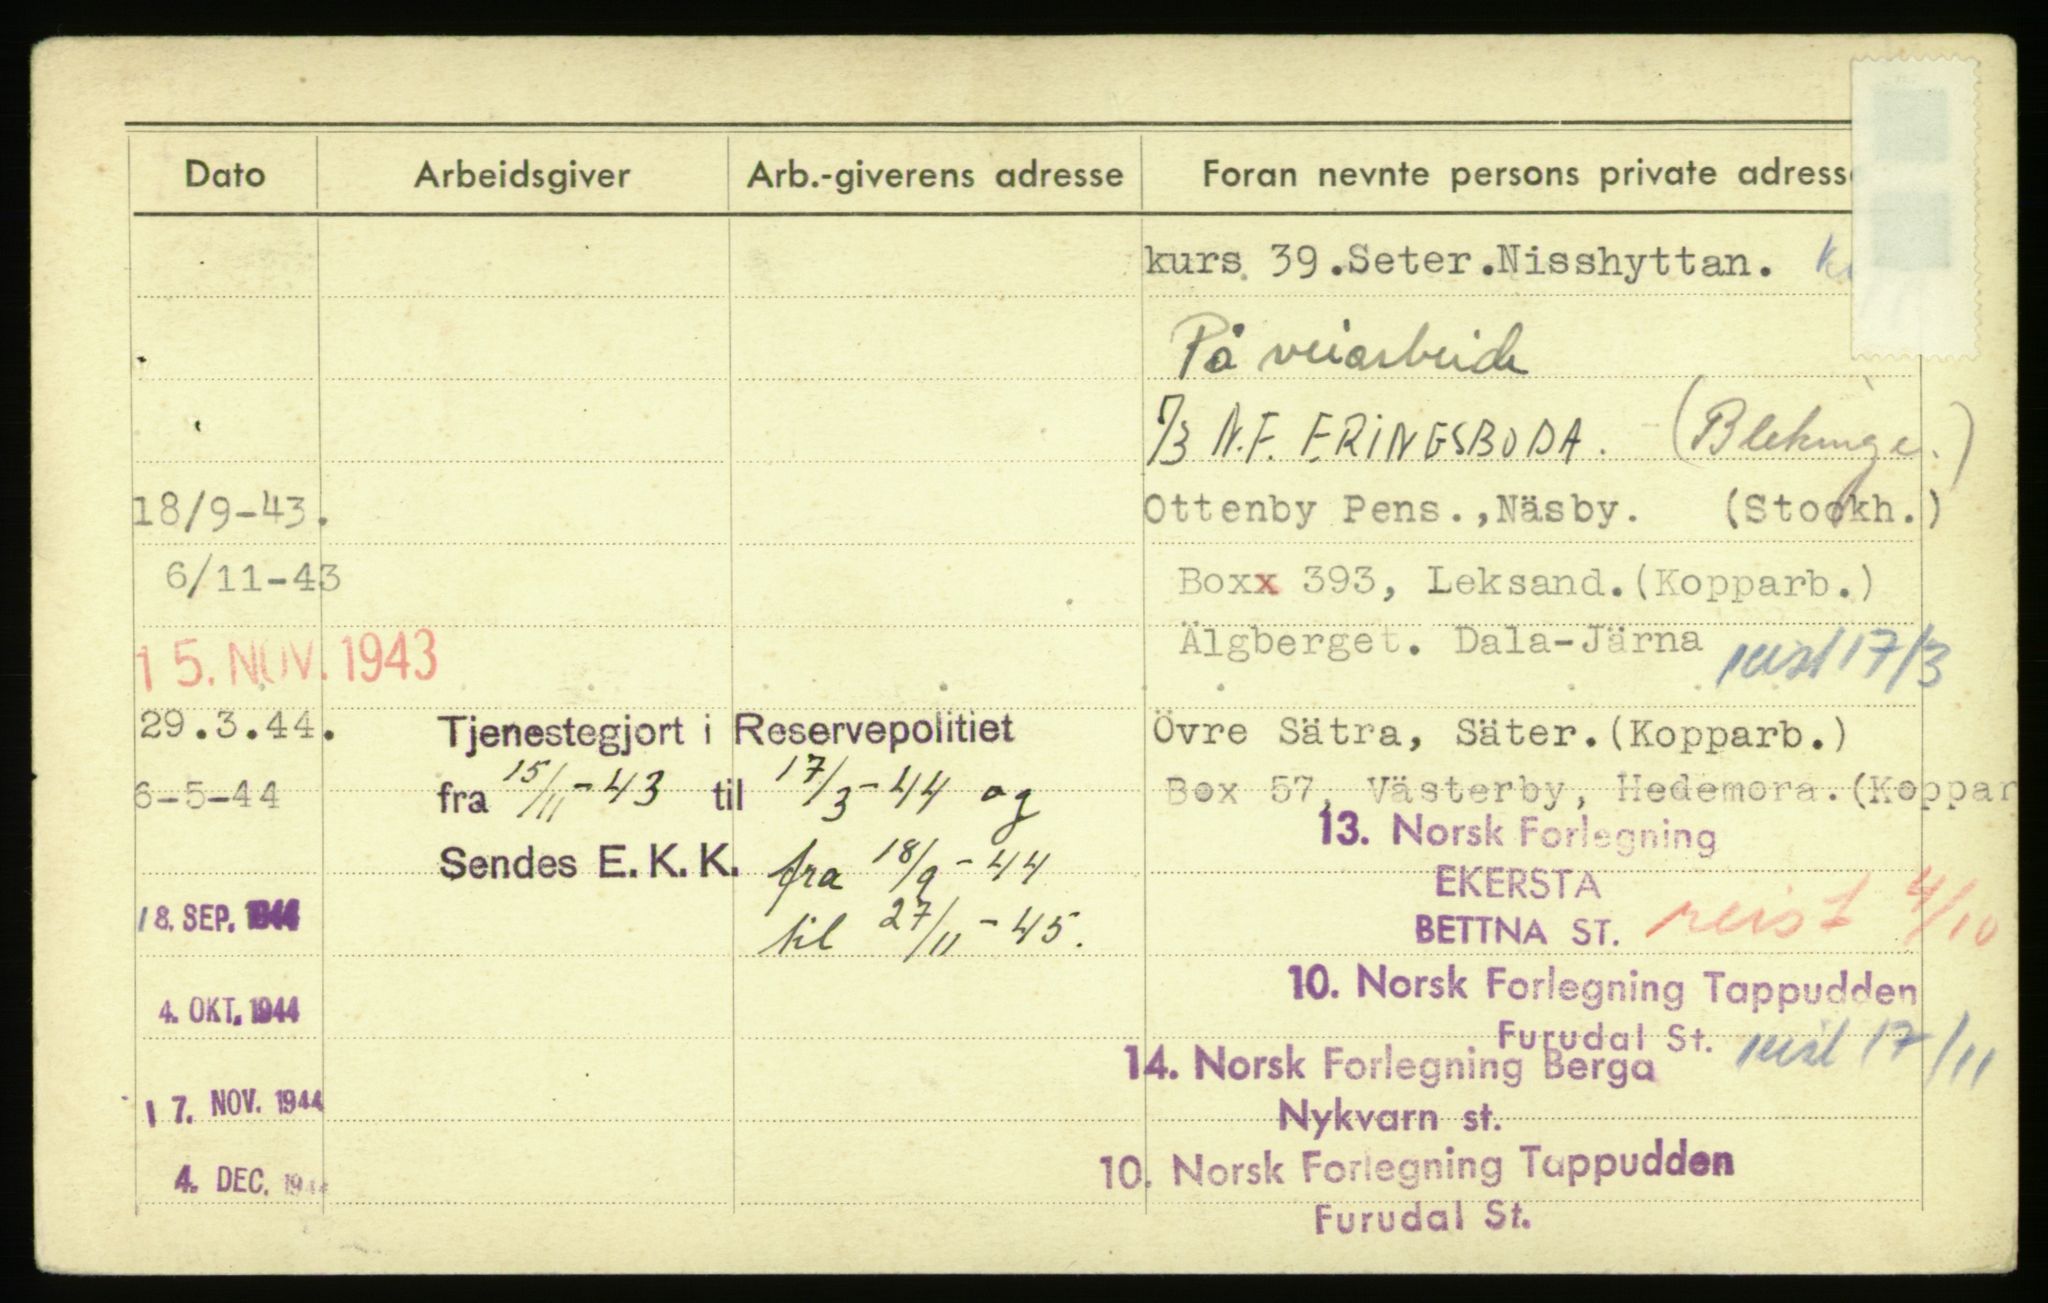 Dato Arbeidsgiver Arb.-giverens adresse Foran nevnte persons private adress
kurs 39.Seter.Nisshyttan.
På veiarbeide
7/3 N.F. FRINGSBODA. (Blekinge.)
18/9-43. Ottenby Pens.,Näsby. (Stockh.)
6/11-43 Boxx 393, Leksand.(Kopparb.)
15. NOV. 1943 Älgberget. Dala-Järna reist 17/3
29.3.44. Tjenestegjort i Reservepolitiet Övre Sätra, Säter.(Kopparb.)
6-5-44 fra 15/11-43 til 17/3-44 og Box 57, Västerby, Hedemora.(Koppar
13. Norsk Forlegning
Sendes E.K.K. fra 18/9-44 EKERSTA
18. SEP. 1944 til 27/11-45. BETTNA ST. reist 4/10
4. OKT. 1944 10. Norsk Forlegning Tappudden
Furudal St. reist 17/11
14. Norsk Forlegning Berga
17. NOV. 1944 Nykvarn st.
4. DEC. 1944 10. Norsk Forlegning Tappudden
Furudal St.